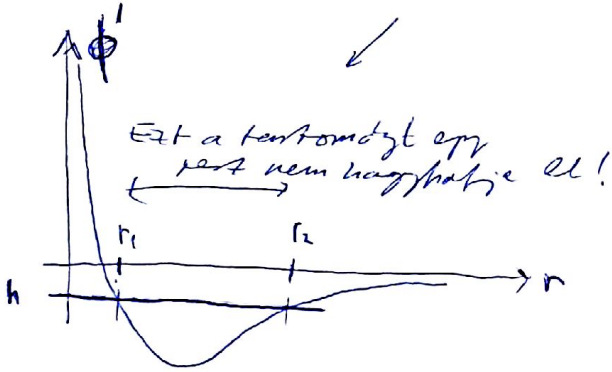 ϕ'
Ezt a tartományt egy
test nem hagyhatja el!
r₁ r₂
r
h